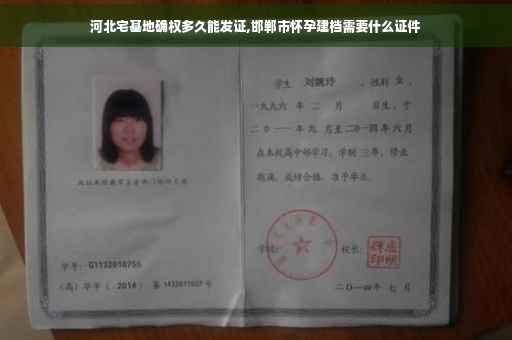 河北宅基地确权多久能发证,邯郸市怀孕建档需要什么证件
学生 刘婉玲 、性别 女 ,
一九九六 年 二 月 日生,于
二〇一一年九 月至二〇一四年六月
在本校高中部学习,学制 三年,修业
期满,成绩合格,准予毕业。
学校:
校长:
二〇一四年 七 月
学号: G1132010755
(高)毕字( 2014 )第 1432011007 号